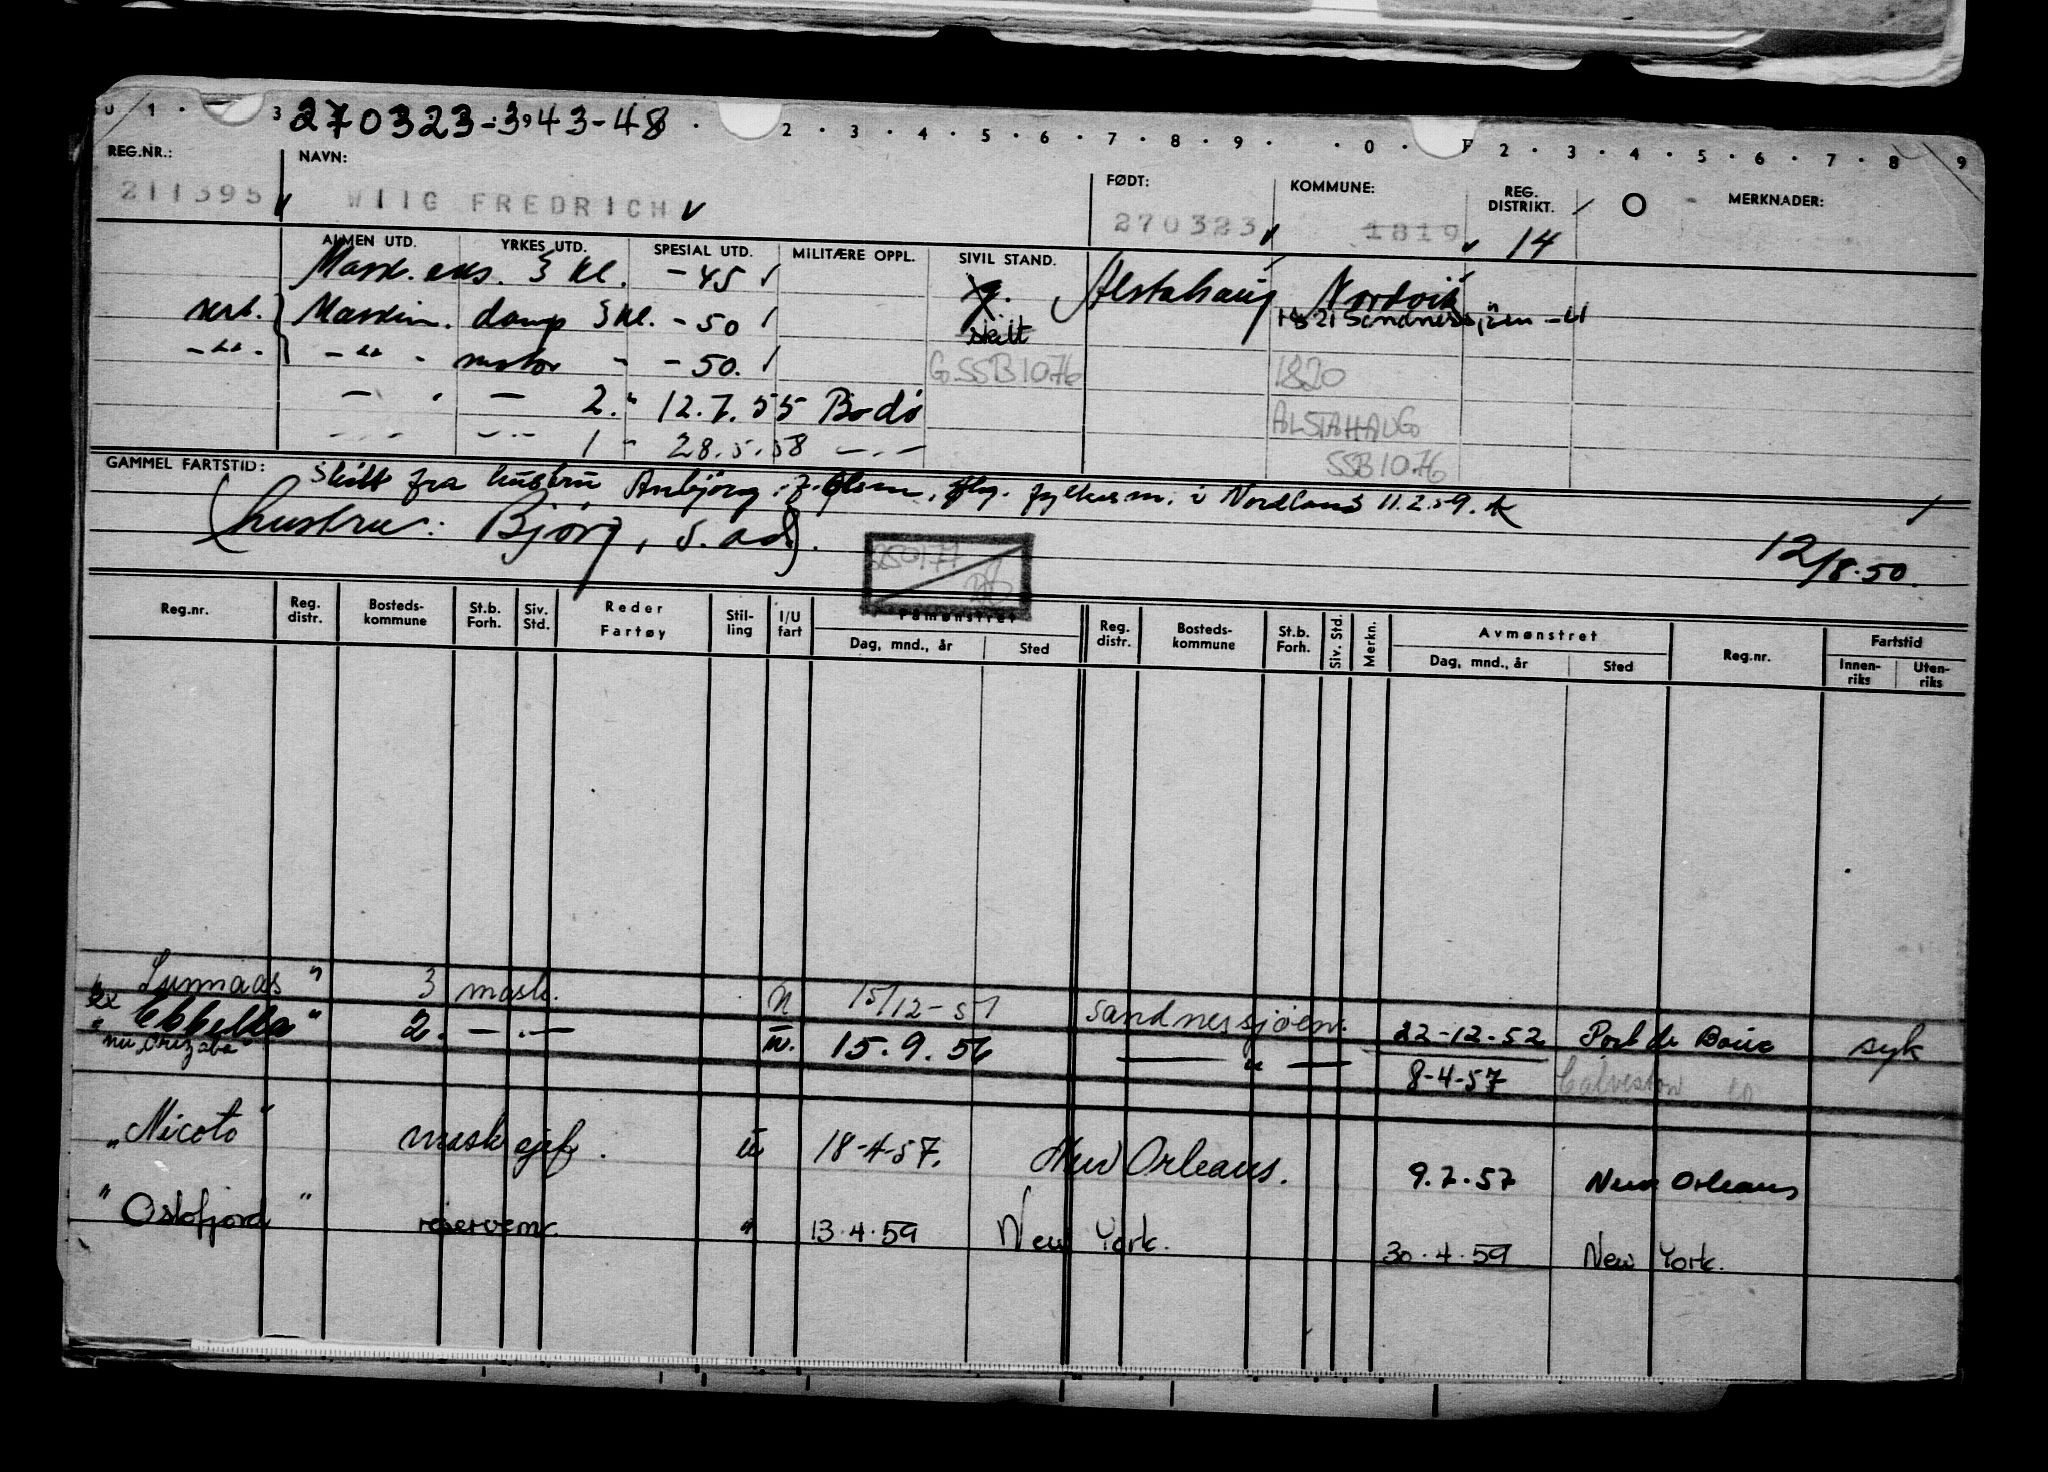 0 1 . 3 270323-3943-48 . 2 . 3 . 4 . 5 . 6 . 7 . 8 . 9 . . 0 . F 2 . 3 . 4 . 5 . 6 . 7 . 8 9
REG.NR.: NAVN: FØDT: KOMMUNE: REG. DISTRIKT. O MERKNADER:
211395 WIIG FREDRICH 270323 1819 14
ALMEN UTD. YRKES UTD. SPESIAL UTD. MILITÆRE OPPL. SIVIL STAND.
Mask. eks. 3 kl. -45 g. Alstahaug Nordvik
sert. Maskin. damp 3 kl. - 50 skilt 1821 Sandnessjøen
-"- . -"- . motor " - 50. G.SSB10.76 1820
— . — 2. " 12.7.55 Bodø ALSTAHAUG
-.- -.- 1 - 28.5.58 -.- SSB10.76
GAMMEL FARTSTID: Skilt fra hustru Anbjörg f. Olsen, flg. fylkesm. i Nordland 11.2.59.
(hustru: Bjørg, s. ad). 12/8.50.
Reg.nr. Reg. distr. Bosteds-kommune St.b. Forh. Siv. Std. Reder Fartøy Stil-ling I/U fart Påmønstret Reg. distr. Bosteds-kommune St.b. Forh. Siv. Std. Merkn. Avmønstret Reg.nr. Fartstid
Dag, mnd., år Sted Dag, mnd., år Sted Innen-riks Uten-riks
Lunnaas " 3 mask. u 15/12-51 Sandnessjøen. 22-12-52 Port de Bouc syk
ex " " 2. -.- u. 15.9.56 — " — 8-4-57 Galveston
nu "Orizaba"
"Nicoto" mask sjef. u 18-4-57. New Orleans. 9.7.57 New Orleans
"Oslofjord" reservem. " 13.4.59 New York. 30.4.59 New York.